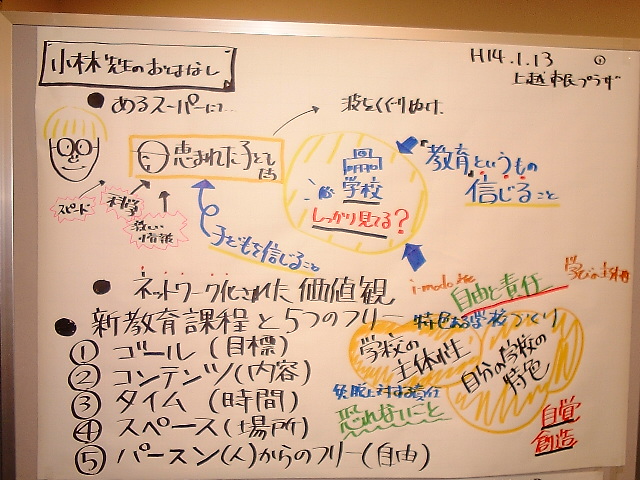 小林先生のおはなし
H14.1.13 ①
上越市民プラザ
●あるスーパーにて…
波をくぐりぬけ
恵まれた子ども
スピード
科学
情報
学校
しっかり見てる?
『教育というもの
信じること
子どもを信じること
●ネットワーク化された価値観
i-mode
自由と責任
●新教育課程と5つのフリー
特色ある学校づくり
①ゴール(目標)
②コンテンツ(内容)
③タイム(時間)
④スペース(場所)
⑤パースン(人)からのフリー(自由)
学校の
主体性
自分の学校の
特色
失敗に対する責任
恐れないこと
自覚
創造